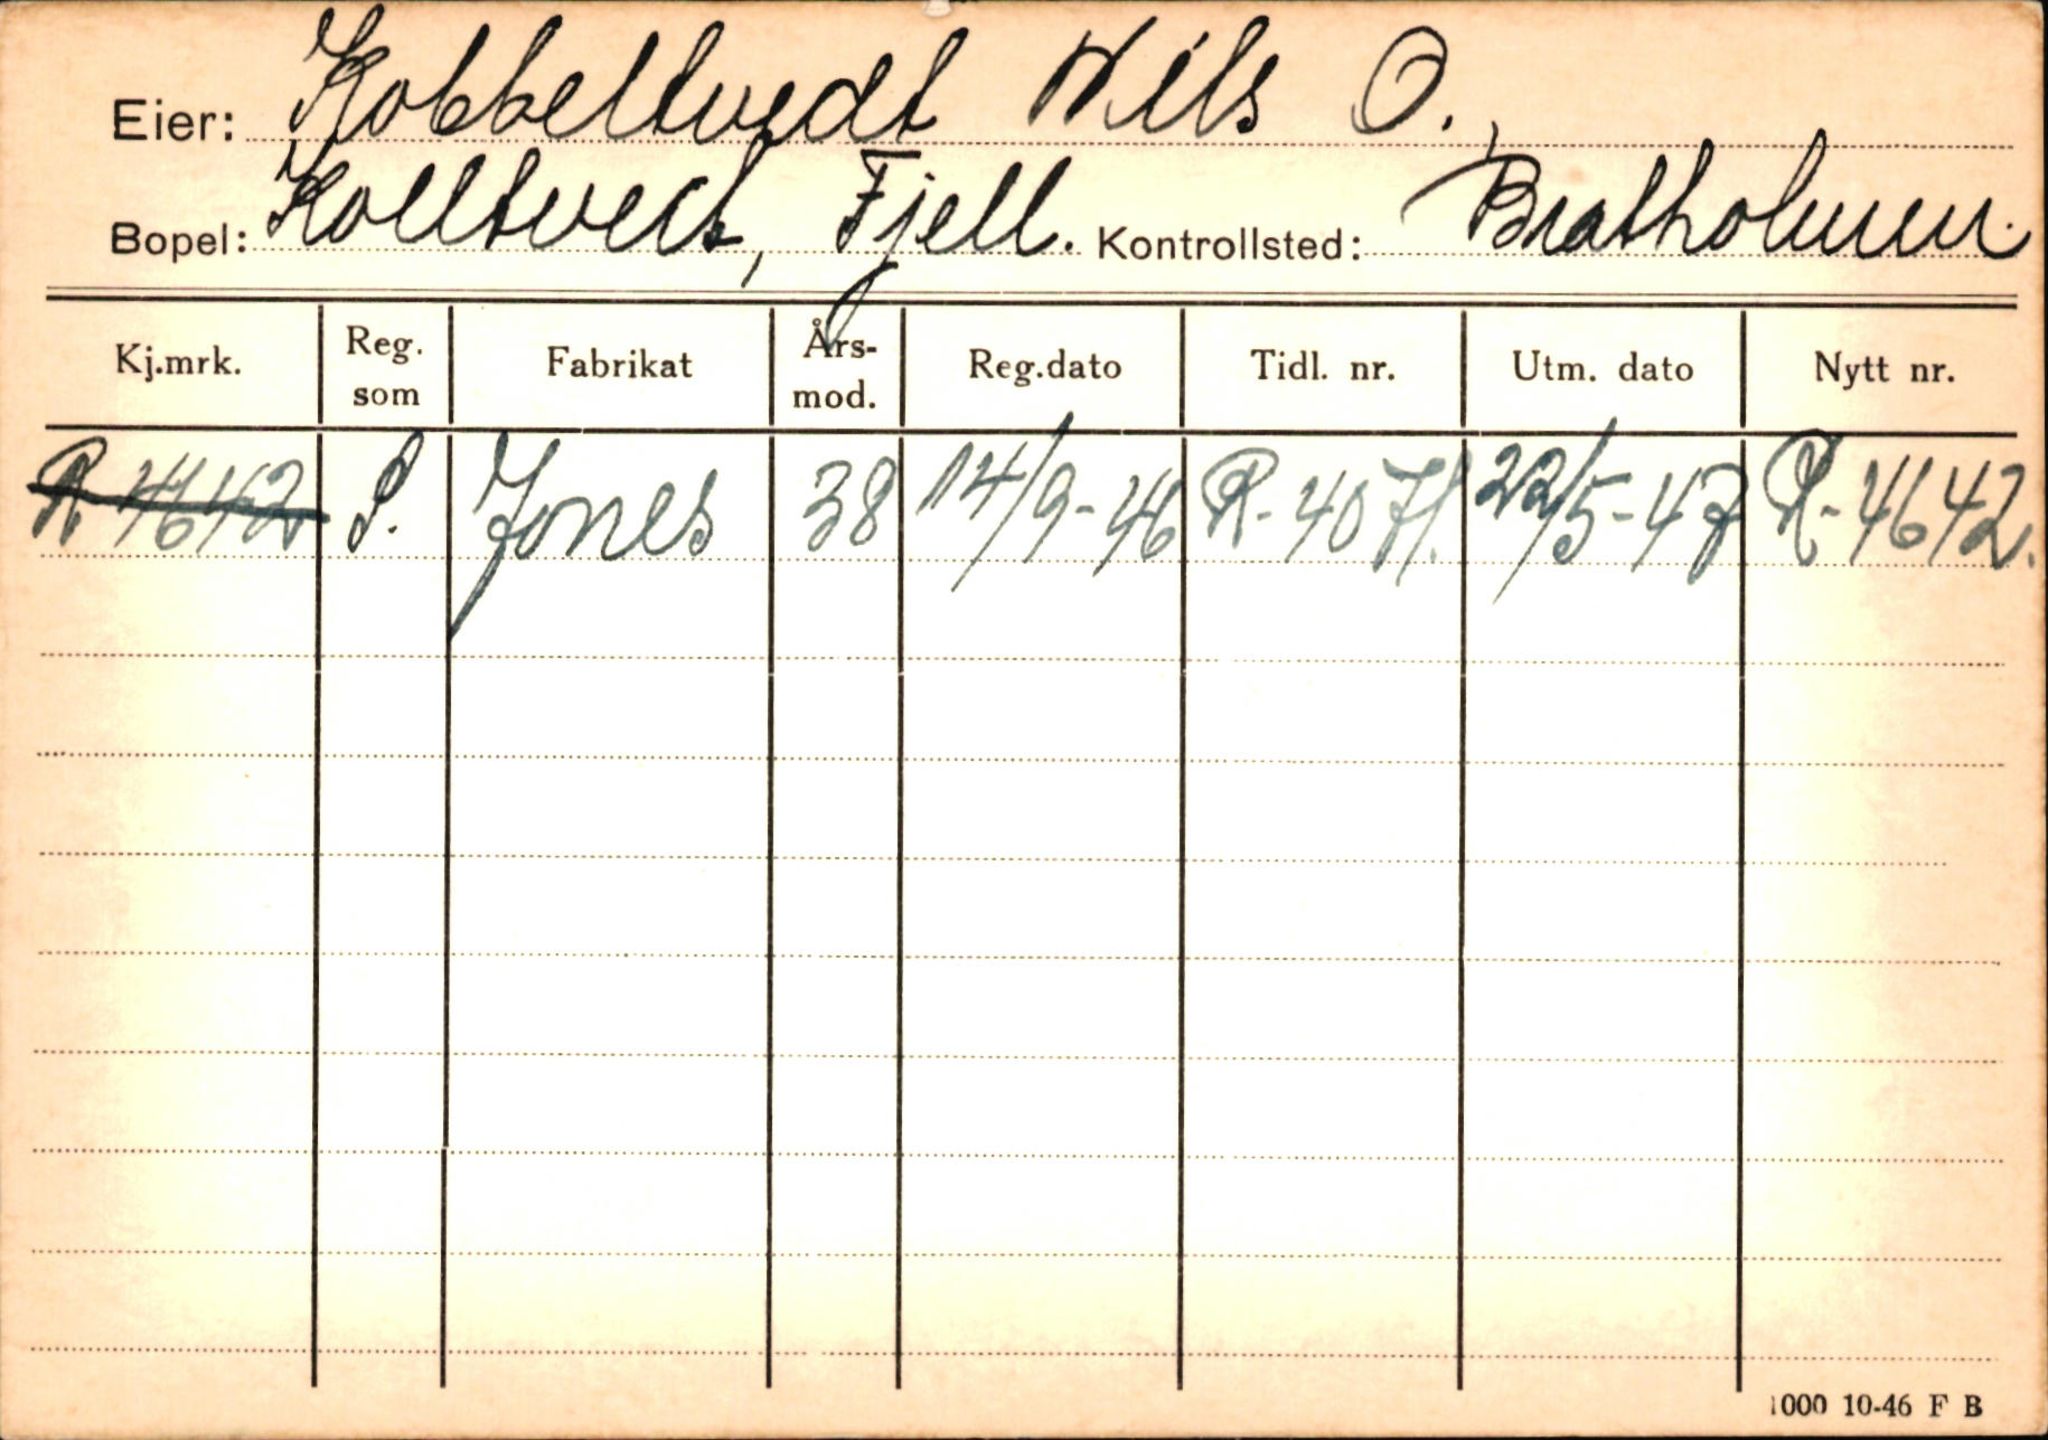 Eier: Kobbeltvedt Nils O.,
Bopel: Kolltveit, Fjell. Kontrollsted: Bratholmen.
Kj.mrk. Reg. som Fabrikat Års-mod. Reg.dato Tidl. nr. Utm. dato Nytt nr.
R 4642 P. Jones 38 14/9-46 R-4071. 22/5-47 R-4642.
1000 10-46 F B